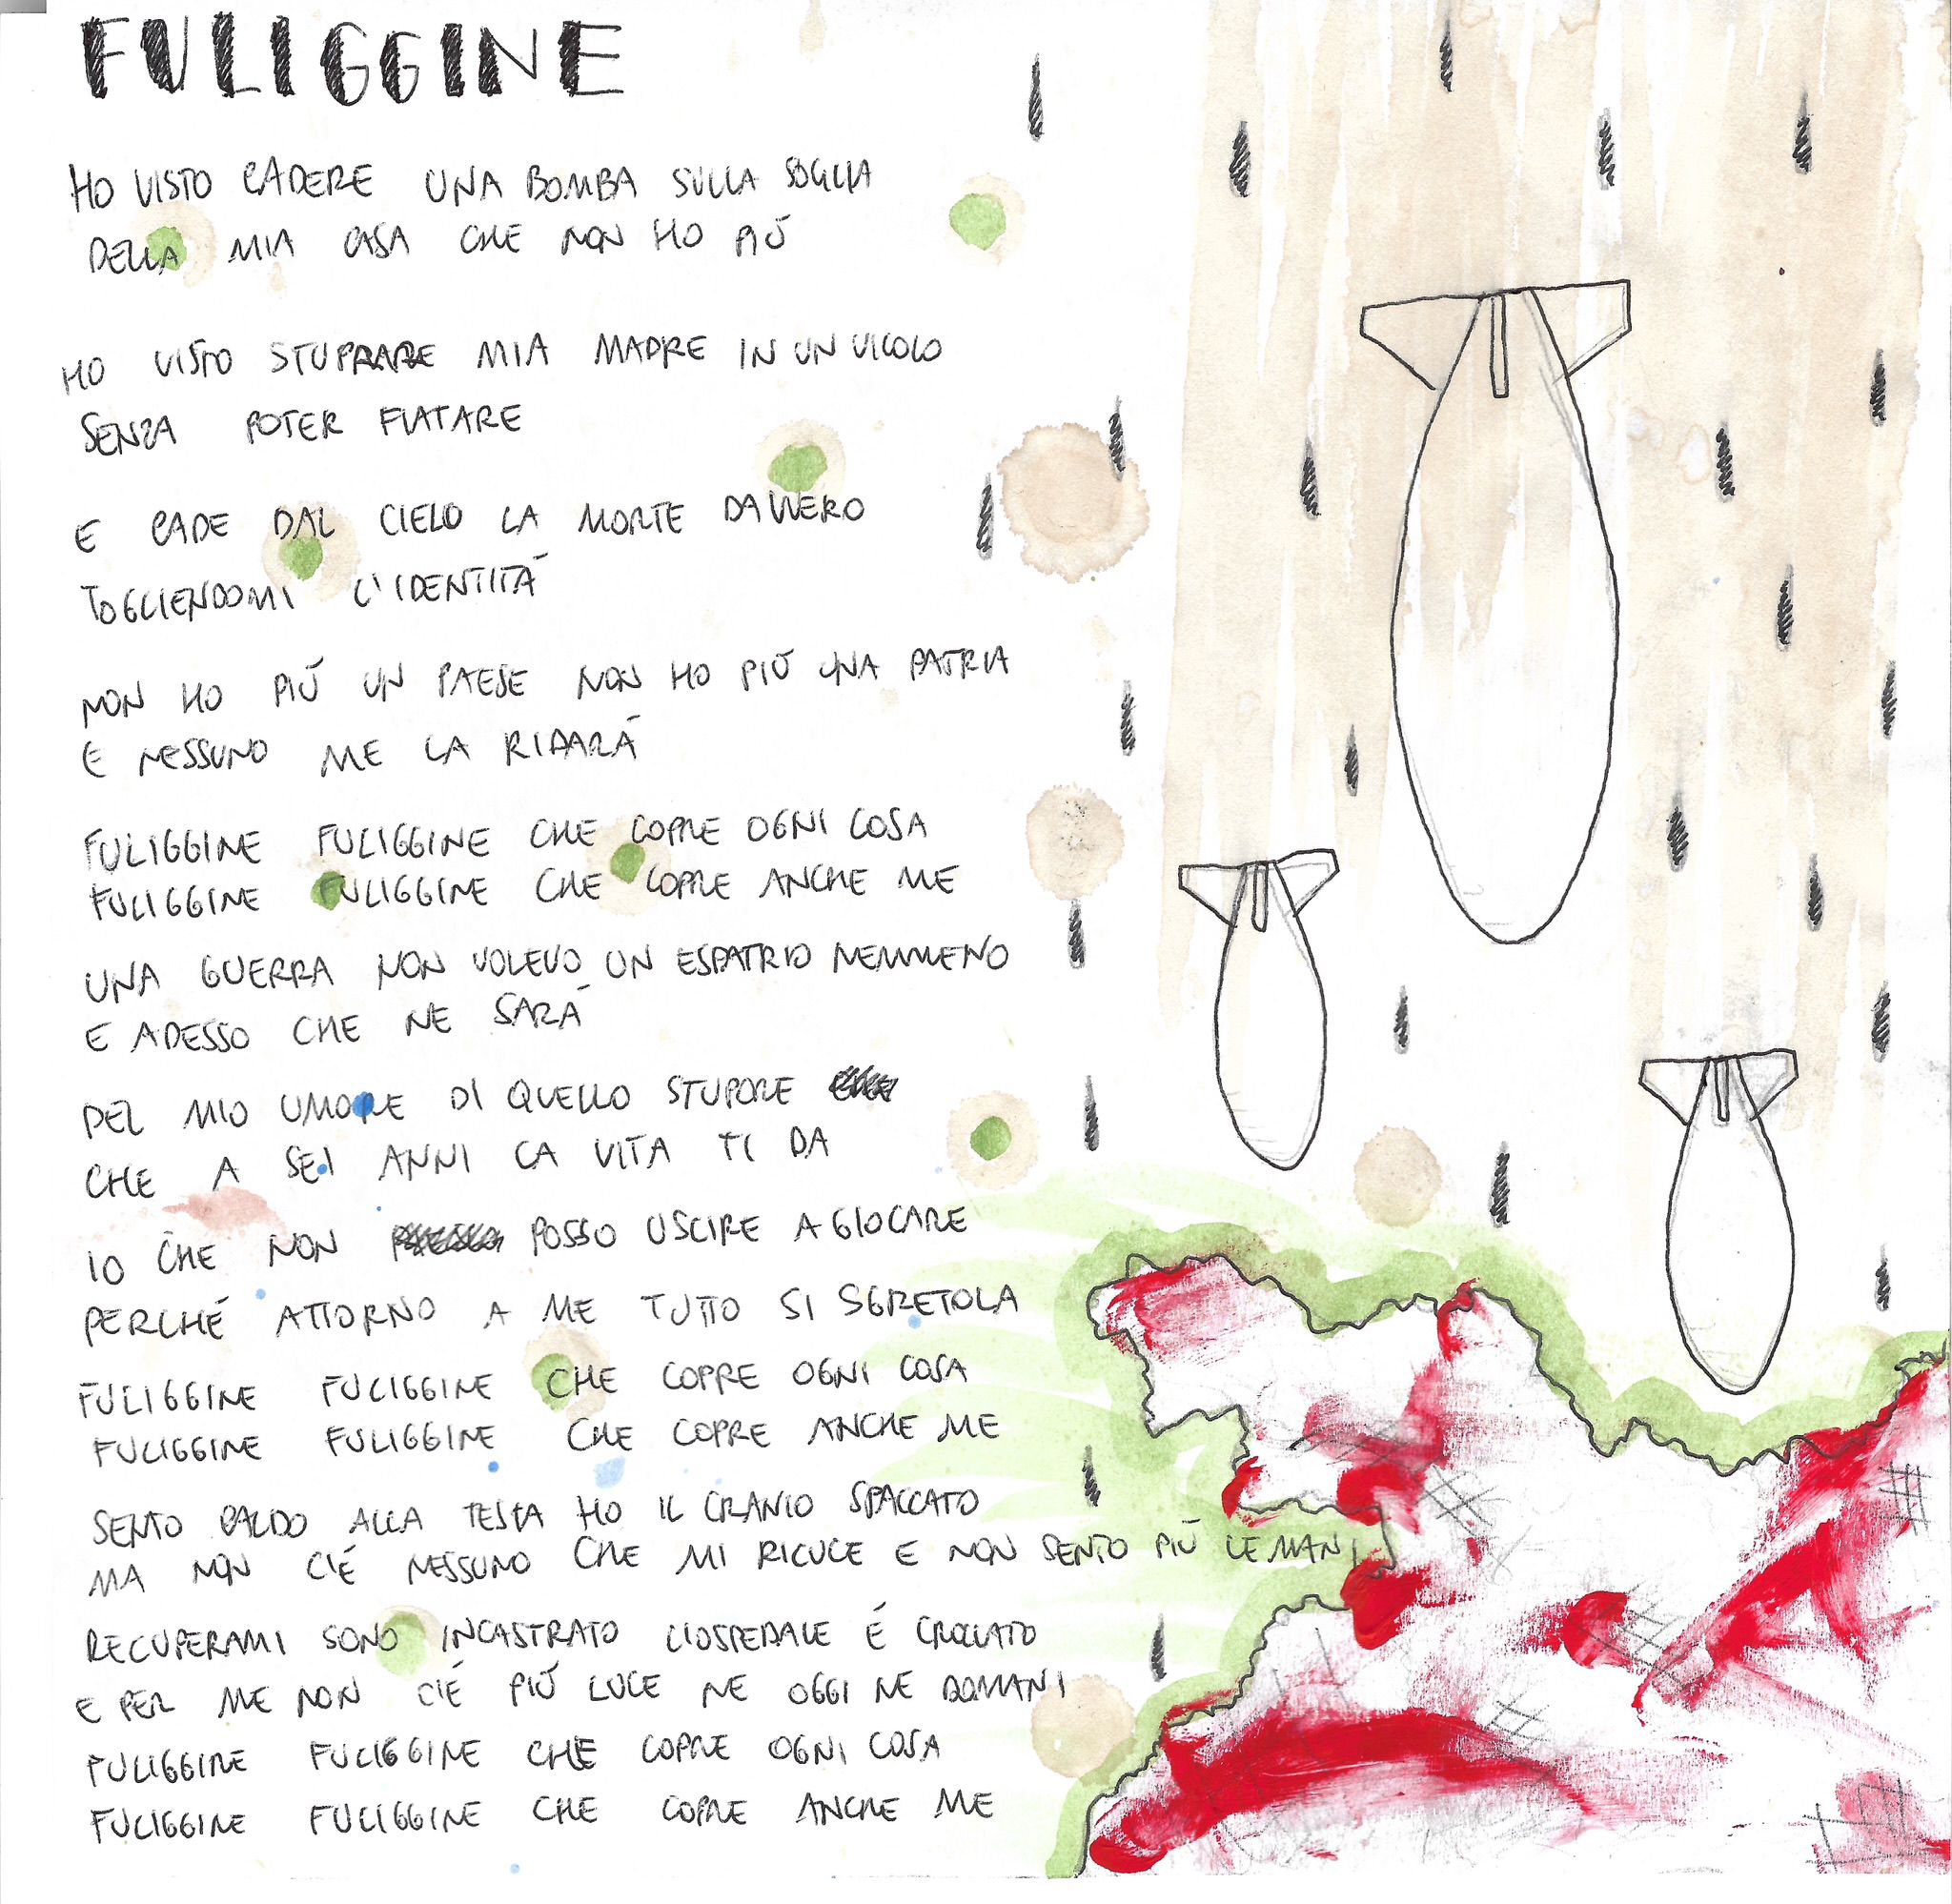 FULIGGINE
HO VISTO CADERE UNA BOMBA SULLA SOGLIA
DELLA MIA CASA CHE NON HO PIÚ
HO VISTO STUPRARE MIA MADRE IN UN VICOLO
SENZA POTER FIATARE
E CADE DAL CIELO LA MORTE DAVVERO
TOGLIENDOMI L'IDENTITÁ
NON HO PIÚ UN PAESE NON HO PIÚ UNA PATRIA
E NESSUNO ME LA RIDARÁ
FULIGGINE FULIGGINE CHE COPRE OGNI COSA
FULIGGINE FULIGGINE CHE COPRE ANCHE ME
UNA GUERRA NON VOLEVO UN ESPATRIO NEMMENO
E ADESSO CHE NE SARÁ
DEL MIO UMORE DI QUELLO STUPORE
CHE A SEI ANNI LA VITA TI DA
IO CHE NON POSSO USCIRE A GIOCARE
PERCHÉ ATTORNO A ME TUTTO SI SGRETOLA
FULIGGINE FULIGGINE CHE COPRE OGNI COSA
FULIGGINE FULIGGINE CHE COPRE ANCHE ME
SENTO CALDO ALLA TESTA HO IL CRANIO SPACCATO
MA NON C'É NESSUNO CHE MI RICUCE E NON SENTO PIÚ LE MANI
RECUPERAMI SONO INCASTRATO L'OSPEDALE É CROLLATO
E PER ME NON C'É PIÚ LUCE NE OGGI NE DOMANI
FULIGGINE FULIGGINE CHE COPRE OGNI COSA
FULIGGINE FULIGGINE CHE COPRE ANCHE ME